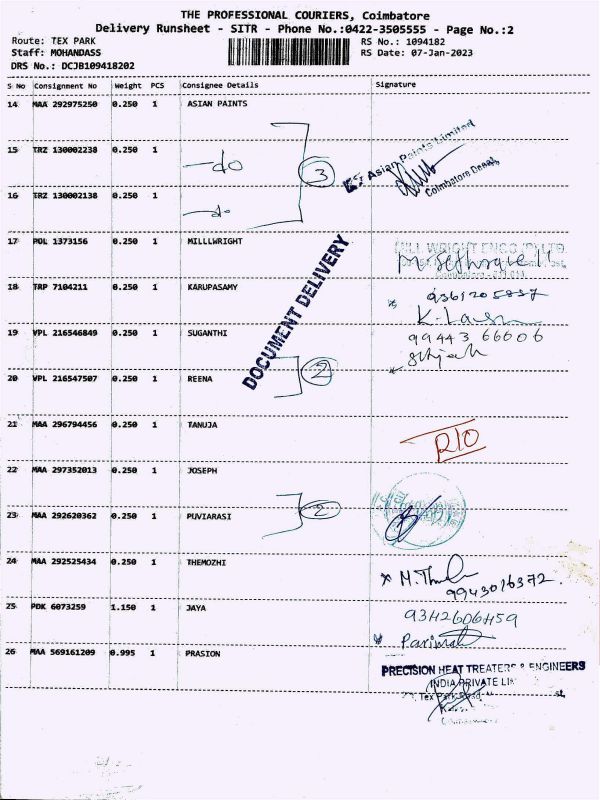 THE PROFESSIONAL COURIERS, Coimbatore
Delivery Runsheet - SITR - Phone No.:0422-3505555 - Page No.:2
Route: TEX PARK
RS No.: 1094182
Staff: MOHANDASS
RS Date: 07-Jan-2023
DRS No.: DCJB109418202
S No Consignment No Weight PCS Consignee Details Signature
14 MAA 292975250 0.250 1 ASIAN PAINTS
15 TRZ 130002238 0.250 1 —do
3
Asian Paints Limited
Coimbatore Depot
16 TRZ 130002138 0.250 1 —do
17 POL 1373156 0.250 1 MILLLWRIGHT
18 TRP 7104211 0.250 1 KARUPASAMY
DOCUMENT DELIVERY
19 VPL 216546849 0.250 1 SUGANTHI 99443 66606
2
20 VPL 216547507 0.250 1 REENA
21 MAA 296794456 0.250 1 TANUJA
22 MAA 297352013 0.250 1 JOSEPH
2
23 MAA 292620362 0.250 1 PUVIARASI
24 MAA 292525434 0.250 1 THEMOZHI
9943016372
25 PDK 6073259 1.150 1 JAYA 9342606459
26 MAA 569161209 0.995 1 PRASION
PRECISION HEAT TREATERS & ENGINEERS
INDIA PRIVATE